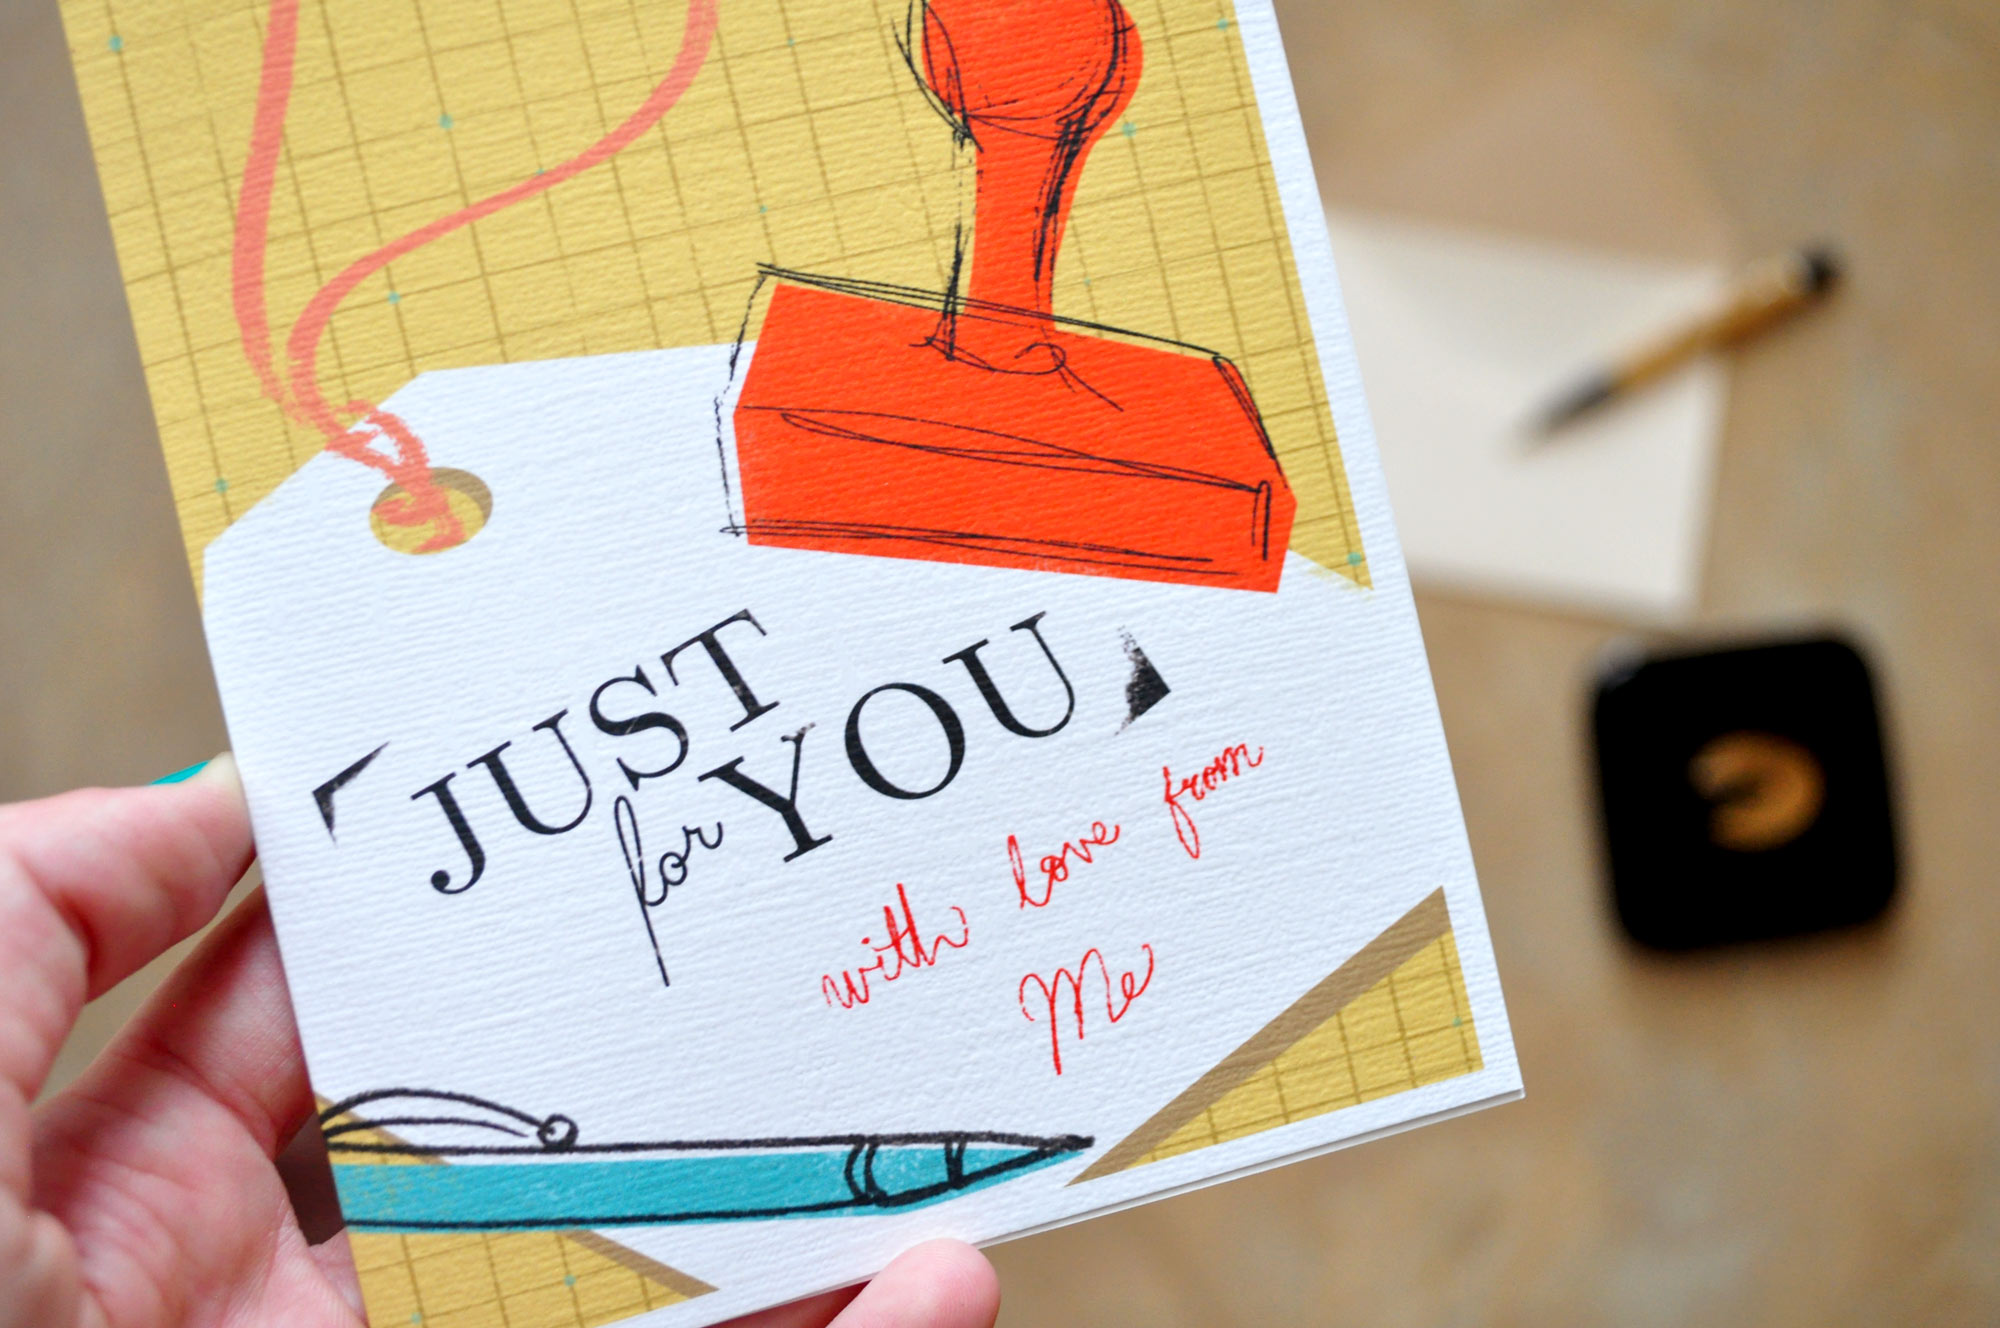 JUST
for YOU
with love from
Me